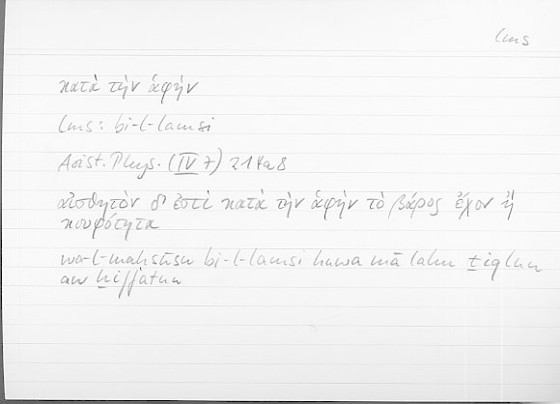 lms
κατὰ τὴν ἁφήν
lms: bi-l-lamsi
Arist. Phys. (IV 7) 214a8
αἰσθητὸν δ' ἐστὶ κατὰ τὴν ἁφὴν τὸ βάρος ἔχον ἢ
κουφότητα
wa-l-maḥsūsu bi-l-lamsi huwa mā lahu ṯiqlun
aw ḫiffatun